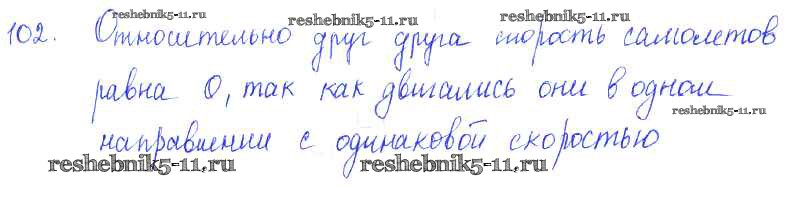 reshebnik5-11.ru
reshebnik5-11.ru
102. Относительно друг друга скорость самолетов
равна 0, так как двигались они в одном
reshebnik5-11.ru
направлении с одинаковой скоростью
reshebnik5-11.ru
reshebnik5-11.ru